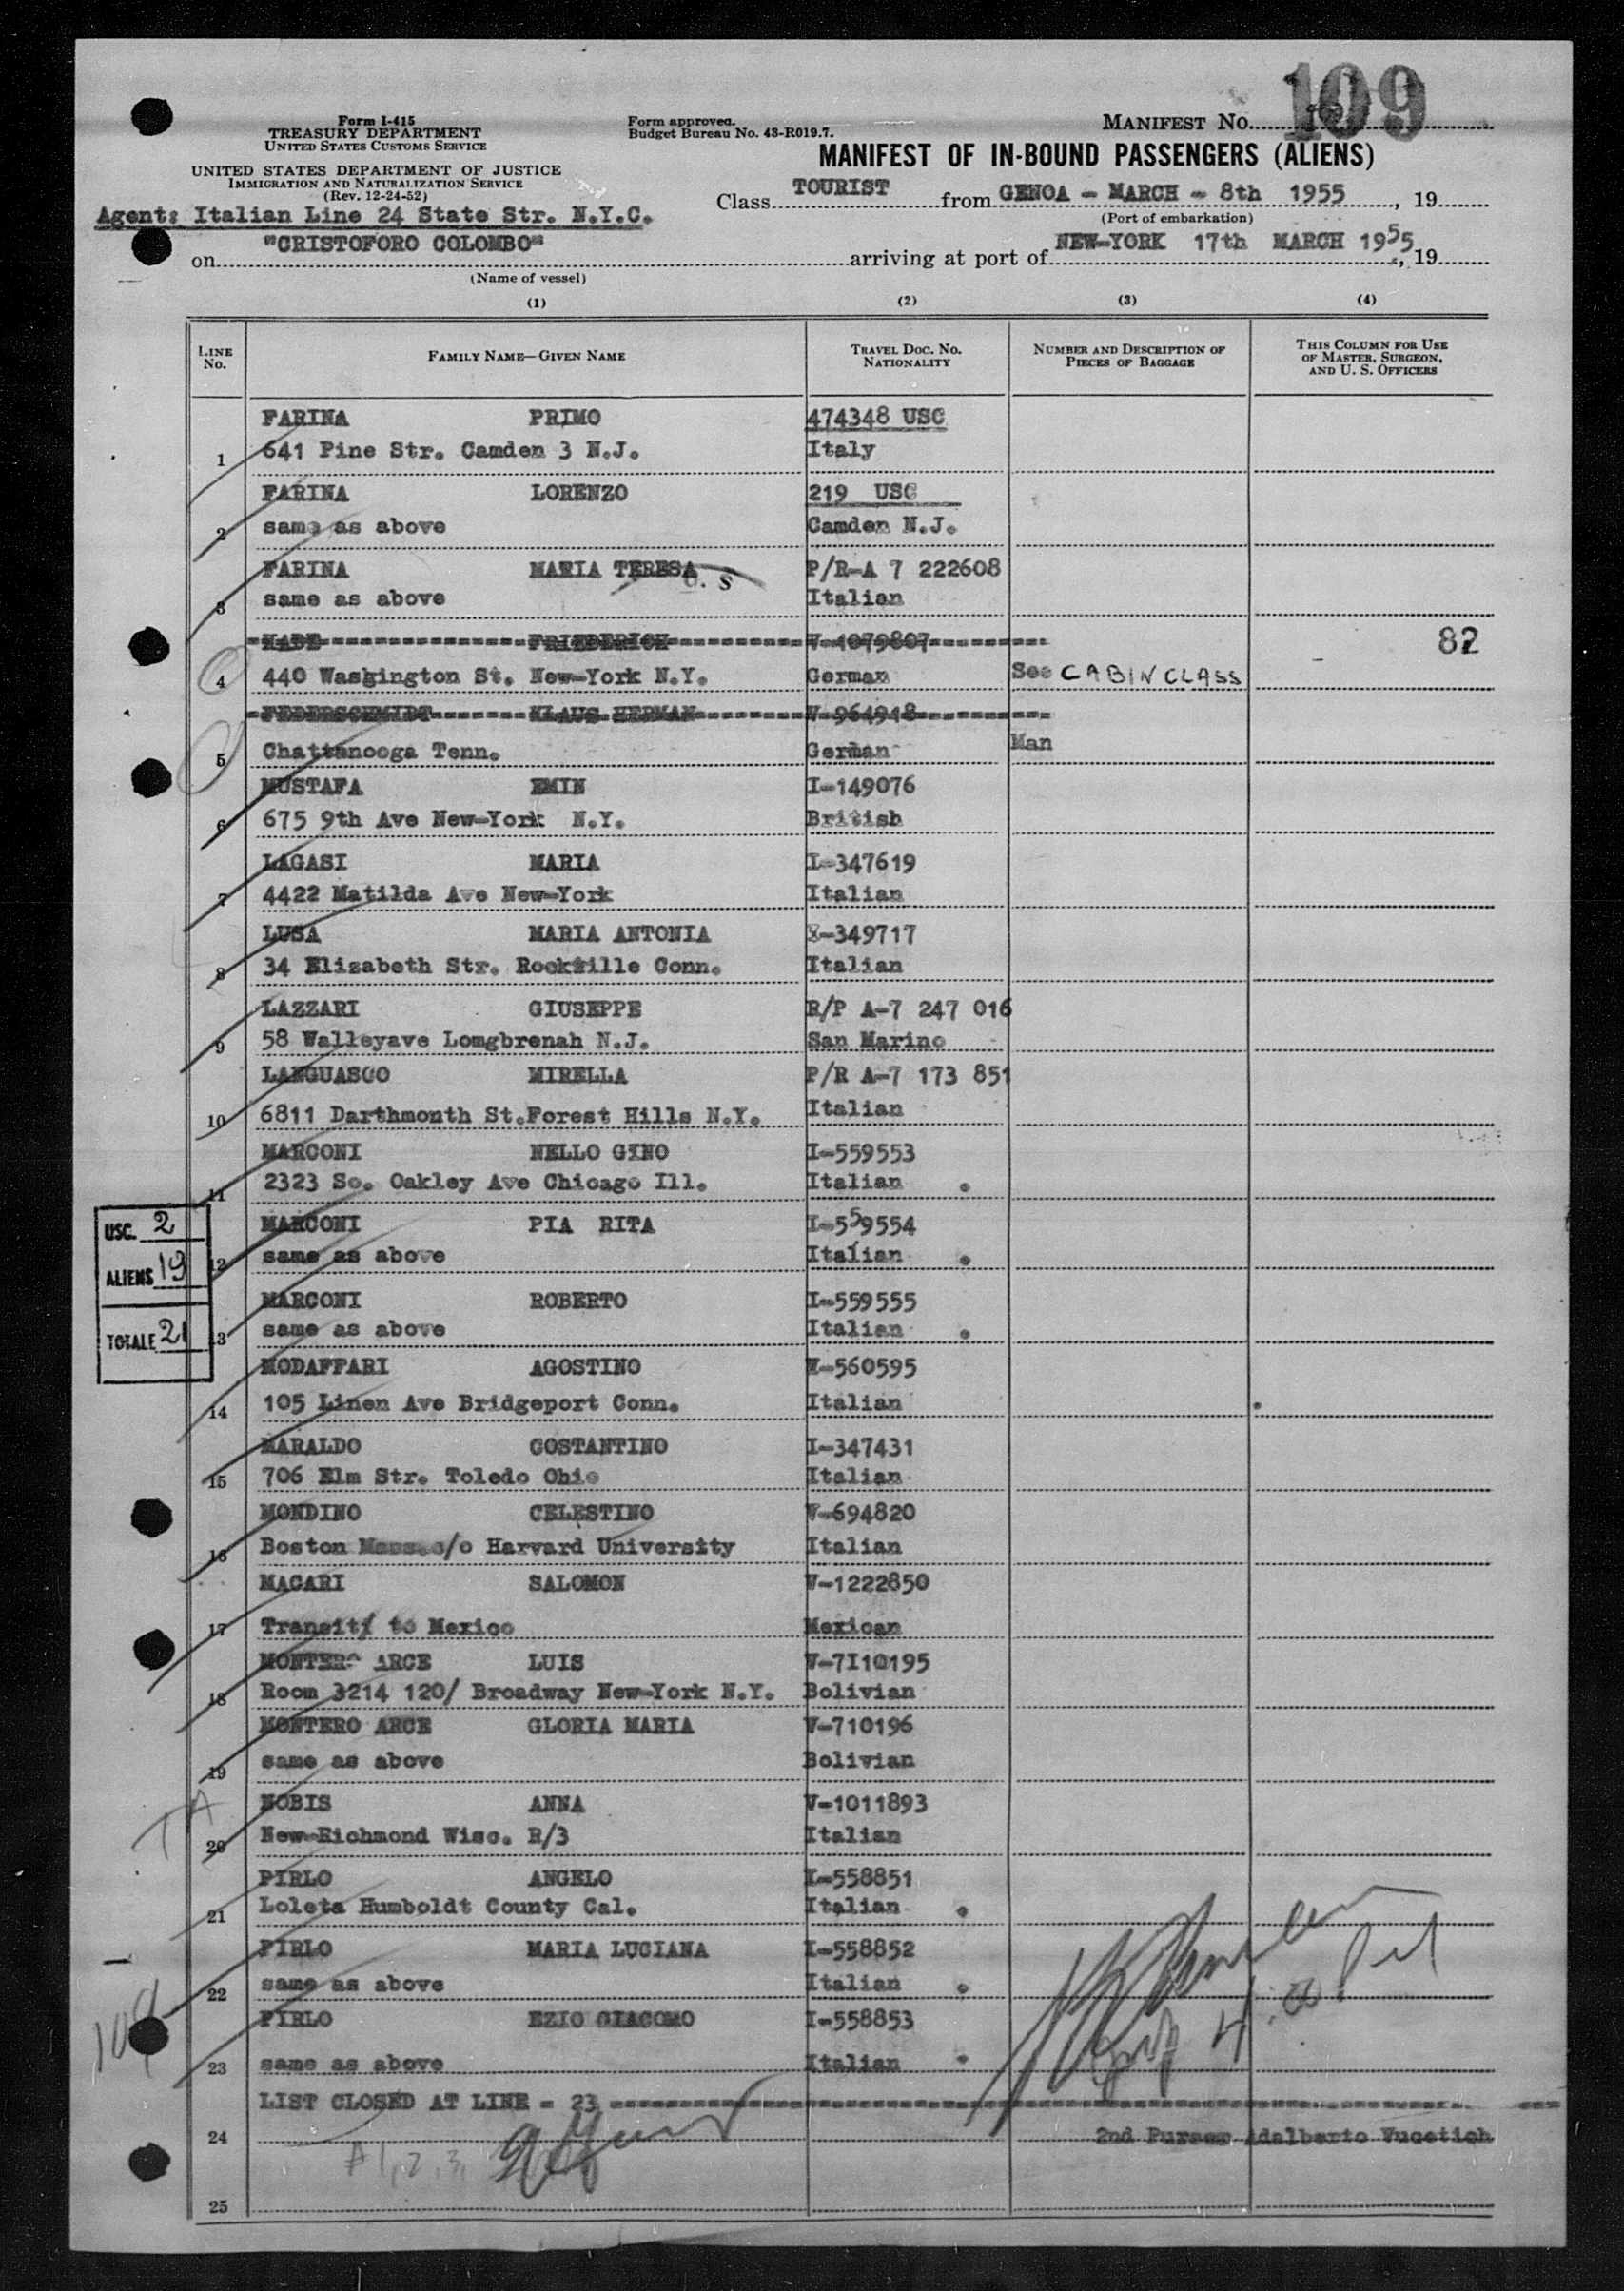 109
Form I-415
TREASURY DEPARTMENT
UNITED STATES CUSTOMS SERVICE
UNITED STATES DEPARTMENT OF JUSTICE
IMMIGRATION AND NATURALIZATION SERVICE
(Rev. 12-24-52)
Form approved.
Budget Bureau No. 43-R019.7.
MANIFEST No.
MANIFEST OF IN-BOUND PASSENGERS (ALIENS)
Agent: Italian Line 24 State Str. N.Y.C.
Class TOURIST from GENOA - MARCH - 8th 1955, 19
(Port of embarkation)
on "CRISTOFORO COLOMBO" arriving at port of NEW-YORK 17th MARCH 1955, 19
(Name of vessel)
(1) (2) (3) (4)
LINE No. FAMILY NAME—GIVEN NAME TRAVEL DOC. No. NATIONALITY NUMBER AND DESCRIPTION OF PIECES OF BAGGAGE THIS COLUMN FOR USE OF MASTER, SURGEON, AND U. S. OFFICERS
FARINA PRIMO 474348 USC
1 641 Pine Str. Camden 3 N.J. Italy
FARINA LORENZO 219 USC
2 same as above Camden N.J.
FARINA MARIA TERESA P/R-A 7 222608
3 same as above Italian
FRIEDERICH V-1079807 82
4 440 Washington St. New-York N.Y. German See CABIN CLASS
FEDERSCHMIDT KLAUS HERMAN V-964948
5 Chattanooga Tenn. German Man
MUSTAFA EMIN I-149076
6 675 9th Ave New-York N.Y. British
LAGASI MARIA I-347619
7 4422 Matilda Ave New-York Italian
LUSA MARIA ANTONIA I-349717
8 34 Elizabeth Str. Rockville Conn. Italian
LAZZARI GIUSEPPE R/P A-7 247 016
9 58 Walleyave Lomgbrenah N.J. San Marino
LANGUASCO MIRELLA P/R A-7 173 851
10 6811 Darthmonth St.Forest Hills N.Y. Italian
MARCONI NELLO GINO I-559553
11 2323 So. Oakley Ave Chicago Ill. Italian
MARCONI PIA RITA I-559554
12 same as above Italian
MARCONI ROBERTO I-559555
13 same as above Italian
USC. 2
ALIENS 19
TOTALE 21
MODAFFARI AGOSTINO I-560595
14 105 Linen Ave Bridgeport Conn. Italian
MARALDO COSTANTINO I-347431
15 706 Elm Str. Toledo Ohio Italian
MONDINO CELESTINO V-694820
16 Boston Mass.c/o Harvard University Italian
MACARI SALOMON V-1222850
17 Transit to Mexico Mexican
MONTERO ARCE LUIS V-7I10195
18 Room 3214 120/ Broadway New-York N.Y. Bolivian
MONTERO ARCE GLORIA MARIA V-710196
19 same as above Bolivian
T A
NOBIS ANNA V-1011893
20 New-Richmond Wisc. R/3 Italian
PIRLO ANGELO I-558851
21 Loleta Humboldt County Cal. Italian
PIRLO MARIA LUCIANA I-558852
22 same as above Italian
PIRLO EZIO GIACOMO I-558853
23 same as above Italian
LIST CLOSED AT LINE = 23
24 2nd Purser Adalberto Vucetich
A 1, 2, 3,
25